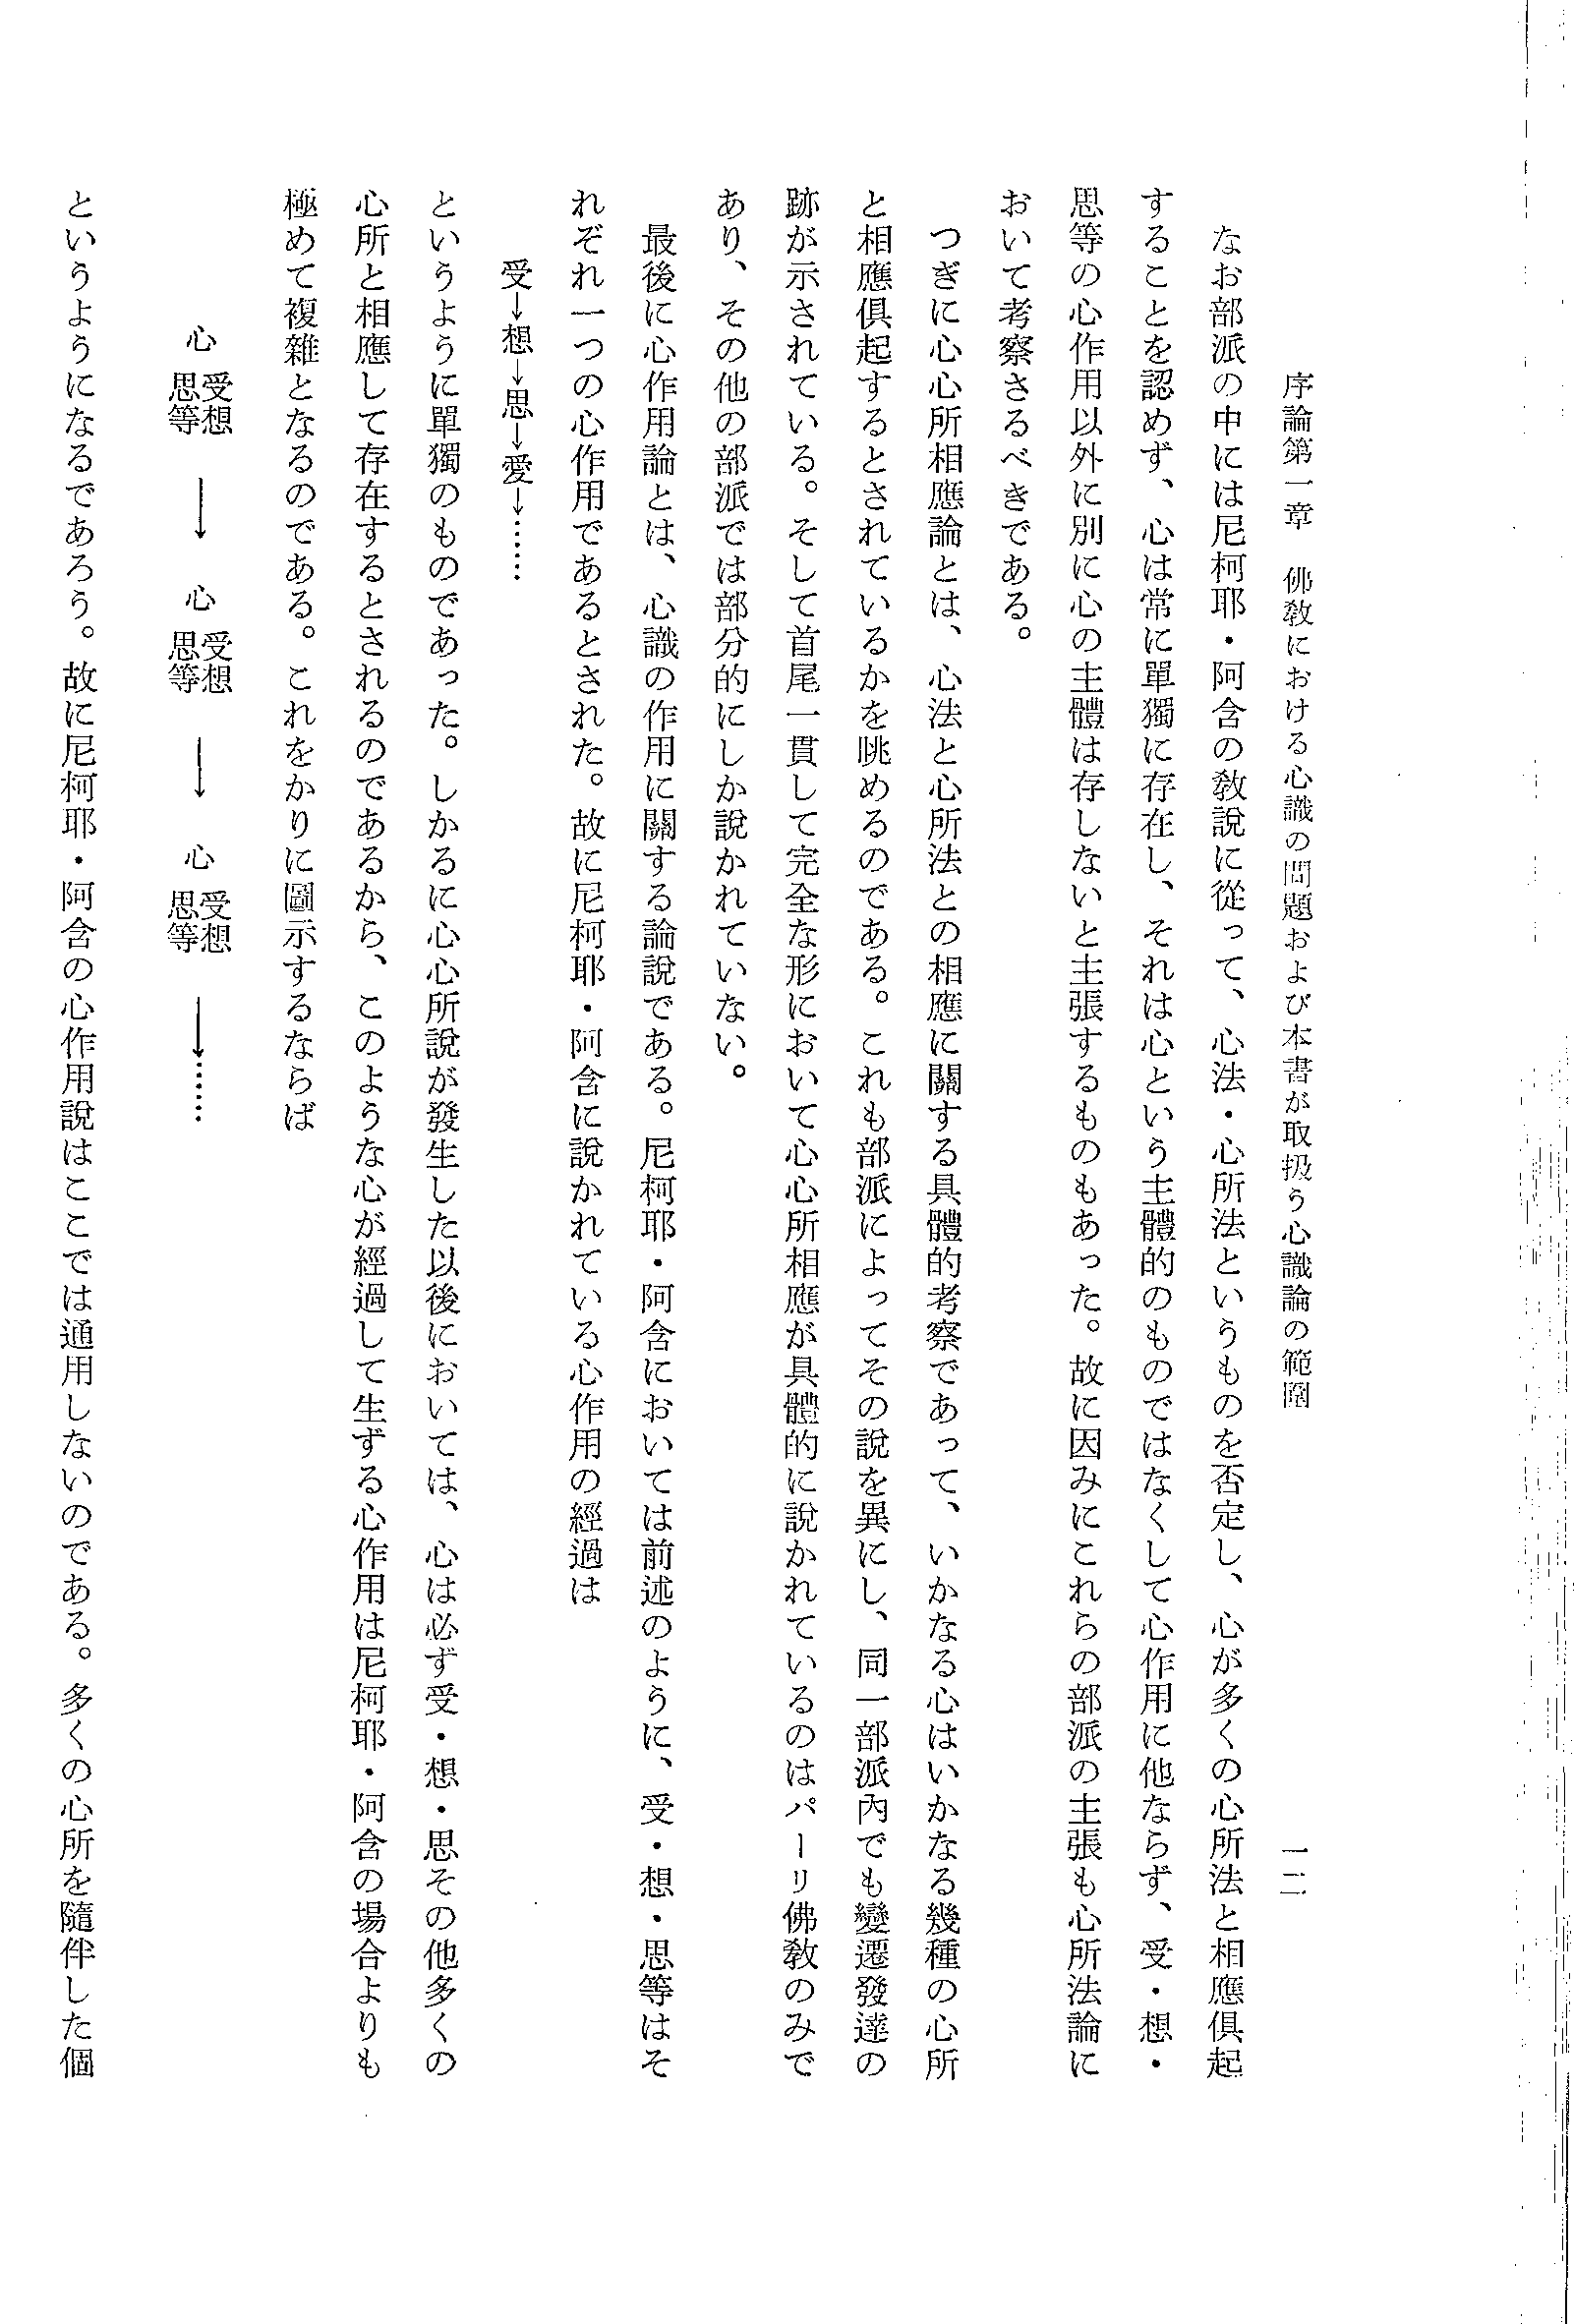 序論第一章　佛敎における心識の問題および本書が取扱う心識論の範圍
一二
なお部派の中には尼柯耶・阿含の敎說に從って、心法・心所法というものを否定し、心が多くの心所法と相應俱起
することを認めず、心は常に單獨に存在し、それは心という主體的のものではなくして心作用に他ならず、受・想・
思等の心作用以外に別に心の主體は存しないと主張するものもあった。故に因みにこれらの部派の主張も心所法論に
おいて考察さるべきである。
つぎに心心所相應論とは、心法と心所法との相應に關する具體的考察であって、いかなる心はいかなる幾種の心所
と相應俱起するとされているかを眺めるのである。これも部派によってその說を異にし、同一部派內でも變遷發達の
跡が示されている。そして首尾一貫して完全な形において心心所相應が具體的に說かれているのはパーリ佛敎のみで
あり、その他の部派では部分的にしか說かれていない。
最後に心作用論とは、心識の作用に關する論說である。尼柯耶・阿含においては前述のように、受・想・思等はそ
れぞれ一つの心作用であるとされた。故に尼柯耶・阿含に說かれている心作用の經過は
受→想→思→愛→……
というように單獨のものであった。しかるに心心所說が發生した以後においては、心は必ず受・想・思その他多くの
心所と相應して存在するとされるのであるから、このような心が經過して生ずる心作用は尼柯耶・阿含の場合よりも
極めて複雜となるのである。これをかりに圖示するならば
心 受想思等 → 心 受想思等 → 心 受想思等 →……
というようになるであろう。故に尼柯耶・阿含の心作用說はここでは通用しないのである。多くの心所を隨伴した個